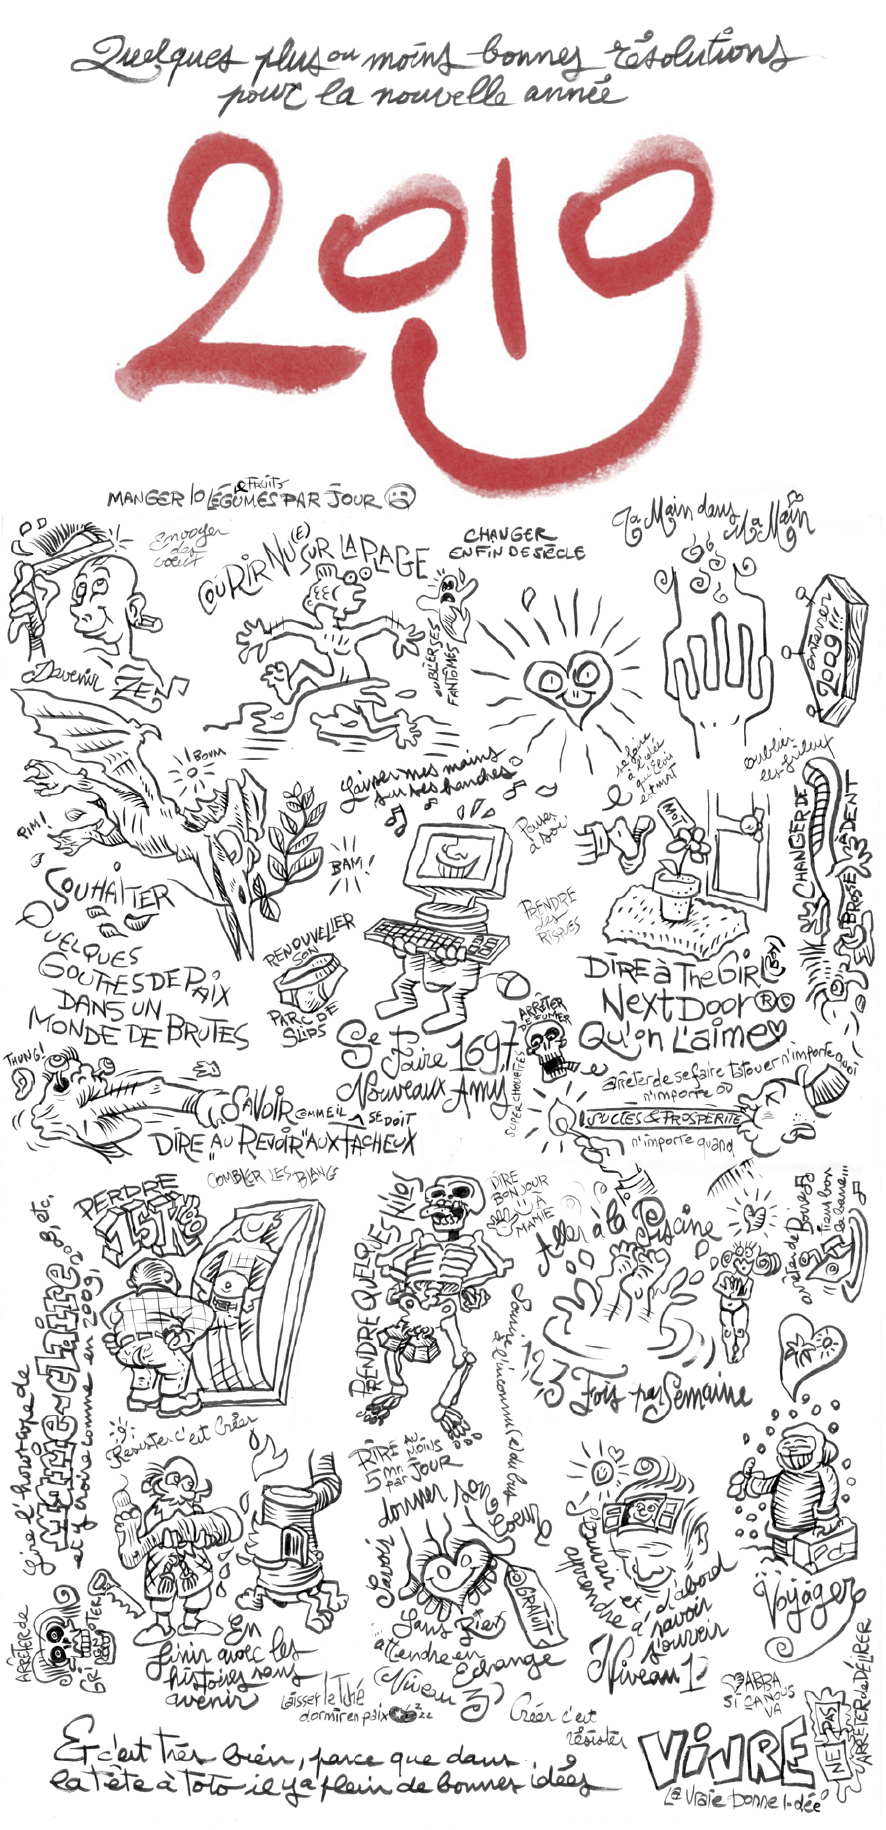 Quelques plus ou moins bonnes résolutions
pour la nouvelle année
2010
MANGER 10 LÉGUMES & FRUITS PAR JOUR
Envoyer
des
voeux
COURIR NU(E) SUR LA PLAGE
CHANGER
EN FIN DE SIÈCLE
Ta Main dans Ma Main
Devenir ZEN
OUBLIER SES
FANTÔMES
enterrer
2009!!!
BOUM
PIM!
BAM!
Laisser mes mains
sur ses hanches
se faire
à l'idée
qu'Elvis
est mort
oublier
les fâcheux
Penser
à soi
MOI
CHANGER DE
BROSSE À DENT
SOUHAITER
QUELQUES
GOUTTES DE PAIX
DANS UN
MONDE DE BRUTES
RENOUVELLER
SON
PARC DE
SLIPS
PRENDRE
des
RISQUES
DIRE à The GIRL (BOY)
NEXT DOOR ® ©
Qu'on L'aime
Se Faire 1697
Nouveaux Amys
ARRÊTER
DE FUMER
SUPER CHOUETTES
THUNG!
SAVOIR COMME IL SE DOIT
DIRE "AU REVOIR" AUX FACHEUX
arrêter de se faire tatouer n'importe quoi
n'importe où
SUCCES & PROSPERITE
n'importe quand
COMBLER LES BLANCS
PERDRE
15 Kilos
PRENDRE QUELQUES KILOS
DIRE
BONJOUR
À
MAMIE
Aller à la Piscine
1,2,3 Fois par Semaine
Sourire à l'inconnu(e) du bus
Lire l'horoscope de
Marie-Claire
et y croire comme en 2009, 8, etc.
Résister c'est Créer
RIRE AU MOINS
5 mn par JOUR
Savoir donner son Coeur
GRATUIT
Sans Rien
attendre en
Echange
(Niveau 3)
s'ouvrir et d'abord
apprendre à savoir
s'ouvrir
Niveau 1
Voyager
ARRÊTER de
GRIGNOTER
En
finir avec les
histoires sans
avenir
Laisser le Tché
dormir en paix
Créer c'est
résister
ABBA
SI ÇA NOUS
VA
ARRÊTER de DÉLIRER
NE PAS
VIVRE
La vraie bonne idée
Et c'est très bien, parce que dans
la tête à Toto il y a plein de bonnes idées